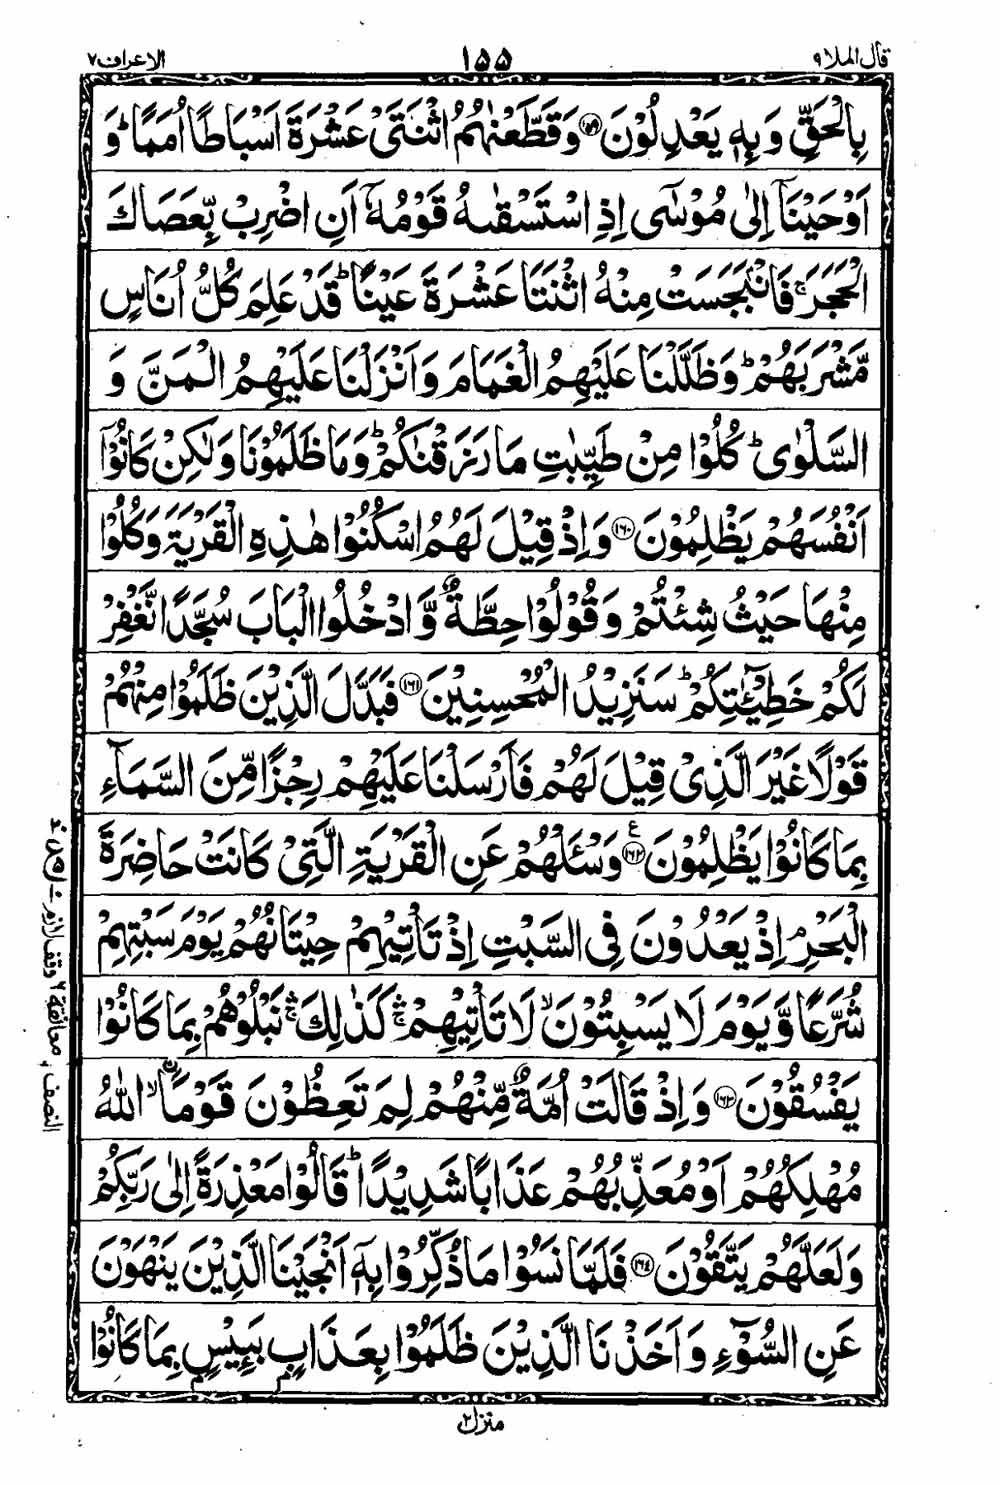 قال الملا ٩ ١٥٥ الاعراف ٧
بِالْحَقِّ وَبِهٖ يَعْدِلُوْنَ ﴿١٥٩﴾ وَقَطَّعْنٰهُمُ اثْنَتَیْ عَشْرَةَ اَسْبَاطًا اُمَمًا ؕ وَ
اَوْحَيْنَاۤ اِلٰى مُوْسٰۤى اِذِ اسْتَسْقٰىهُ قَوْمُهٗۤ اَنِ اضْرِبْ بِّعَصَاكَ
الْحَجَرَ ۚ فَانْۢبَجَسَتْ مِنْهُ اثْنَتَا عَشْرَةَ عَيْنًا ؕ قَدْ عَلِمَ كُلُّ اُنَاسٍ
مَّشْرَبَهُمْ ؕ وَظَلَّلْنَا عَلَيْهِمُ الْغَمَامَ وَاَنْزَلْنَا عَلَيْهِمُ الْمَنَّ وَ
السَّلْوٰى ؕ كُلُوْا مِنْ طَيِّبٰتِ مَا رَزَقْنٰكُمْ ؕ وَمَا ظَلَمُوْنَا وَلٰكِنْ كَانُوْۤا
اَنْفُسَهُمْ يَظْلِمُوْنَ ﴿١٦٠﴾ وَاِذْ قِيْلَ لَهُمُ اسْكُنُوْا هٰذِهِ الْقَرْيَةَ وَكُلُوْا
مِنْهَا حَيْثُ شِئْتُمْ وَقُوْلُوْا حِطَّةٌ وَّادْخُلُوا الْبَابَ سُجَّدًا نَّغْفِرْ
لَكُمْ خَطِيْٓـٰٔتِكُمْ ؕ سَنَزِيْدُ الْمُحْسِنِيْنَ ﴿١٦١﴾ فَبَدَّلَ الَّذِيْنَ ظَلَمُوْا مِنْهُمْ
قَوْلًا غَيْرَ الَّذِیْ قِيْلَ لَهُمْ فَاَرْسَلْنَا عَلَيْهِمْ رِجْزًا مِّنَ السَّمَآءِ
بِمَا كَانُوْا يَظْلِمُوْنَ ﴿١٦٢﴾ ع وَسْـَٔلْهُمْ عَنِ الْقَرْيَةِ الَّتِیْ كَانَتْ حَاضِرَةَ
الْبَحْرِ ۘ اِذْ يَعْدُوْنَ فِی السَّبْتِ اِذْ تَاْتِيْهِمْ حِيْتَانُهُمْ يَوْمَ سَبْتِهِمْ
شُرَّعًا وَّيَوْمَ لَا يَسْبِتُوْنَ ۙ لَا تَاْتِيْهِمْ ۛۚ كَذٰلِكَ ۛۚ نَبْلُوْهُمْ بِمَا كَانُوْا
يَفْسُقُوْنَ ﴿١٦٣﴾ وَاِذْ قَالَتْ اُمَّةٌ مِّنْهُمْ لِمَ تَعِظُوْنَ قَوْمَا ۙ اۨللّٰهُ
مُهْلِكُهُمْ اَوْ مُعَذِّبُهُمْ عَذَابًا شَدِيْدًا ؕ قَالُوْا مَعْذِرَةً اِلٰى رَبِّكُمْ
وَلَعَلَّهُمْ يَتَّقُوْنَ ﴿١٦٤﴾ فَلَمَّا نَسُوْا مَا ذُكِّرُوْا بِهٖۤ اَنْجَيْنَا الَّذِيْنَ يَنْهَوْنَ
عَنِ السُّوْٓءِ وَاَخَذْنَا الَّذِيْنَ ظَلَمُوْا بِعَذَابٍۭ بَـِٔيْسٍۭ بِمَا كَانُوْا
منزل ٢
النصف، معانقة ٦ وقف لازم